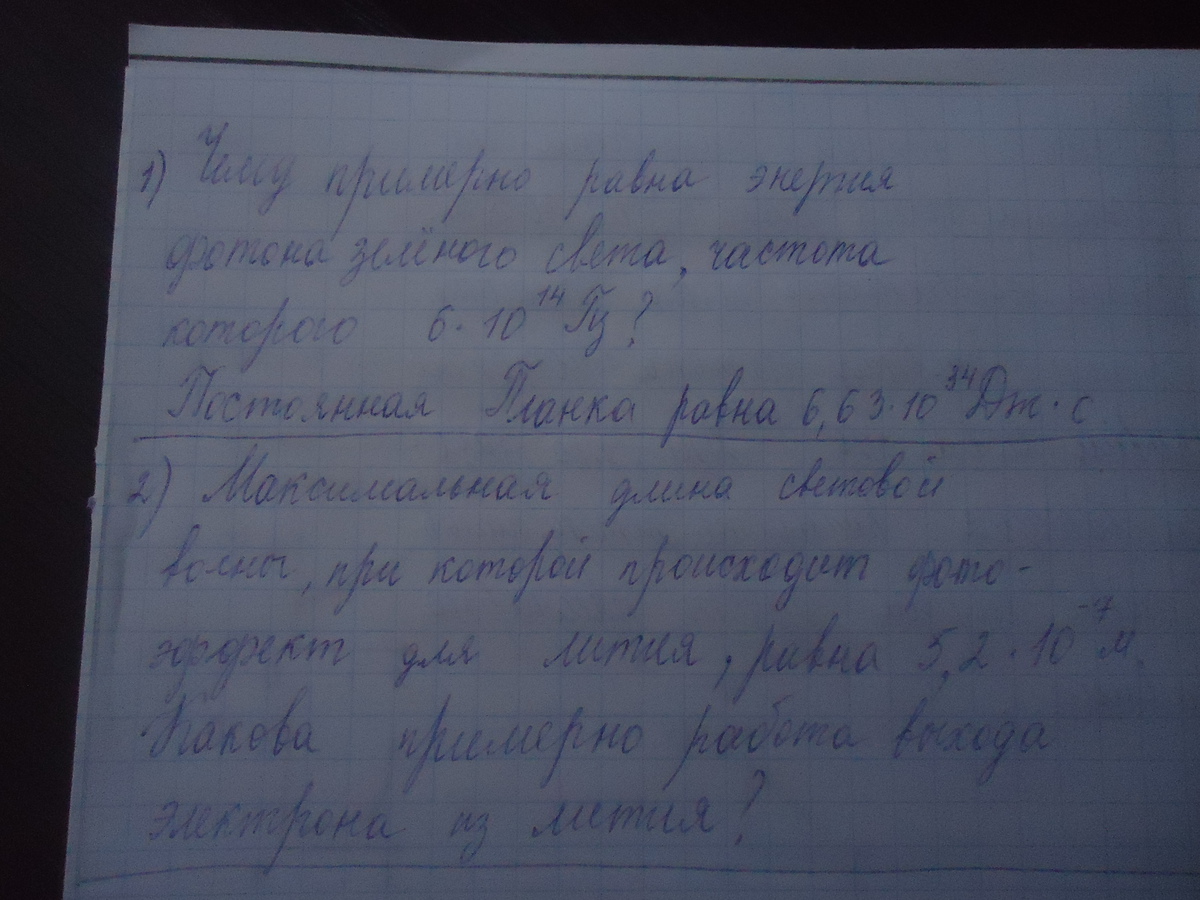 1) Чему примерно равна энергия
фотона зелёного света, частота
которого 6·10¹⁴ Гц?
Постоянная Планка равна 6,63·10⁻³⁴ Дж·с
2) Максимальная длина световой
волны, при которой происходит фото-
эффект для лития, равна 5,2·10⁻⁷ м.
Какова примерно работа выхода
электрона из лития?